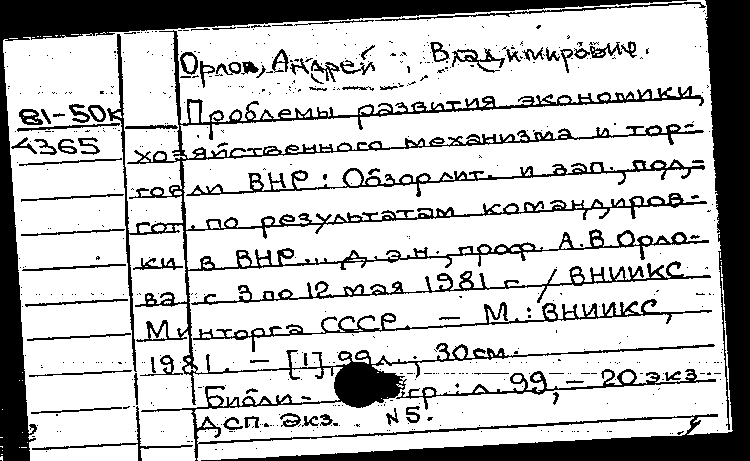 Орлов, Андрей Владимирович.
81-50к
4365
Проблемы развития экономики,
хозяйственного механизма и тор-
говли ВНР : Обзор лит. и зап., под-
гот. по результатам командиров-
ки в ВНР... д.э.н., проф. А.В Орло-
ва с 3 по 12 мая 1981 г / ВНИИКС
Минторга СССР. — М. : ВНИИКС,
1981. — [1], 99 л. ; 30 см.
Библи- гр : л. 99, — 20 экз.
Дсп. экз. №5.